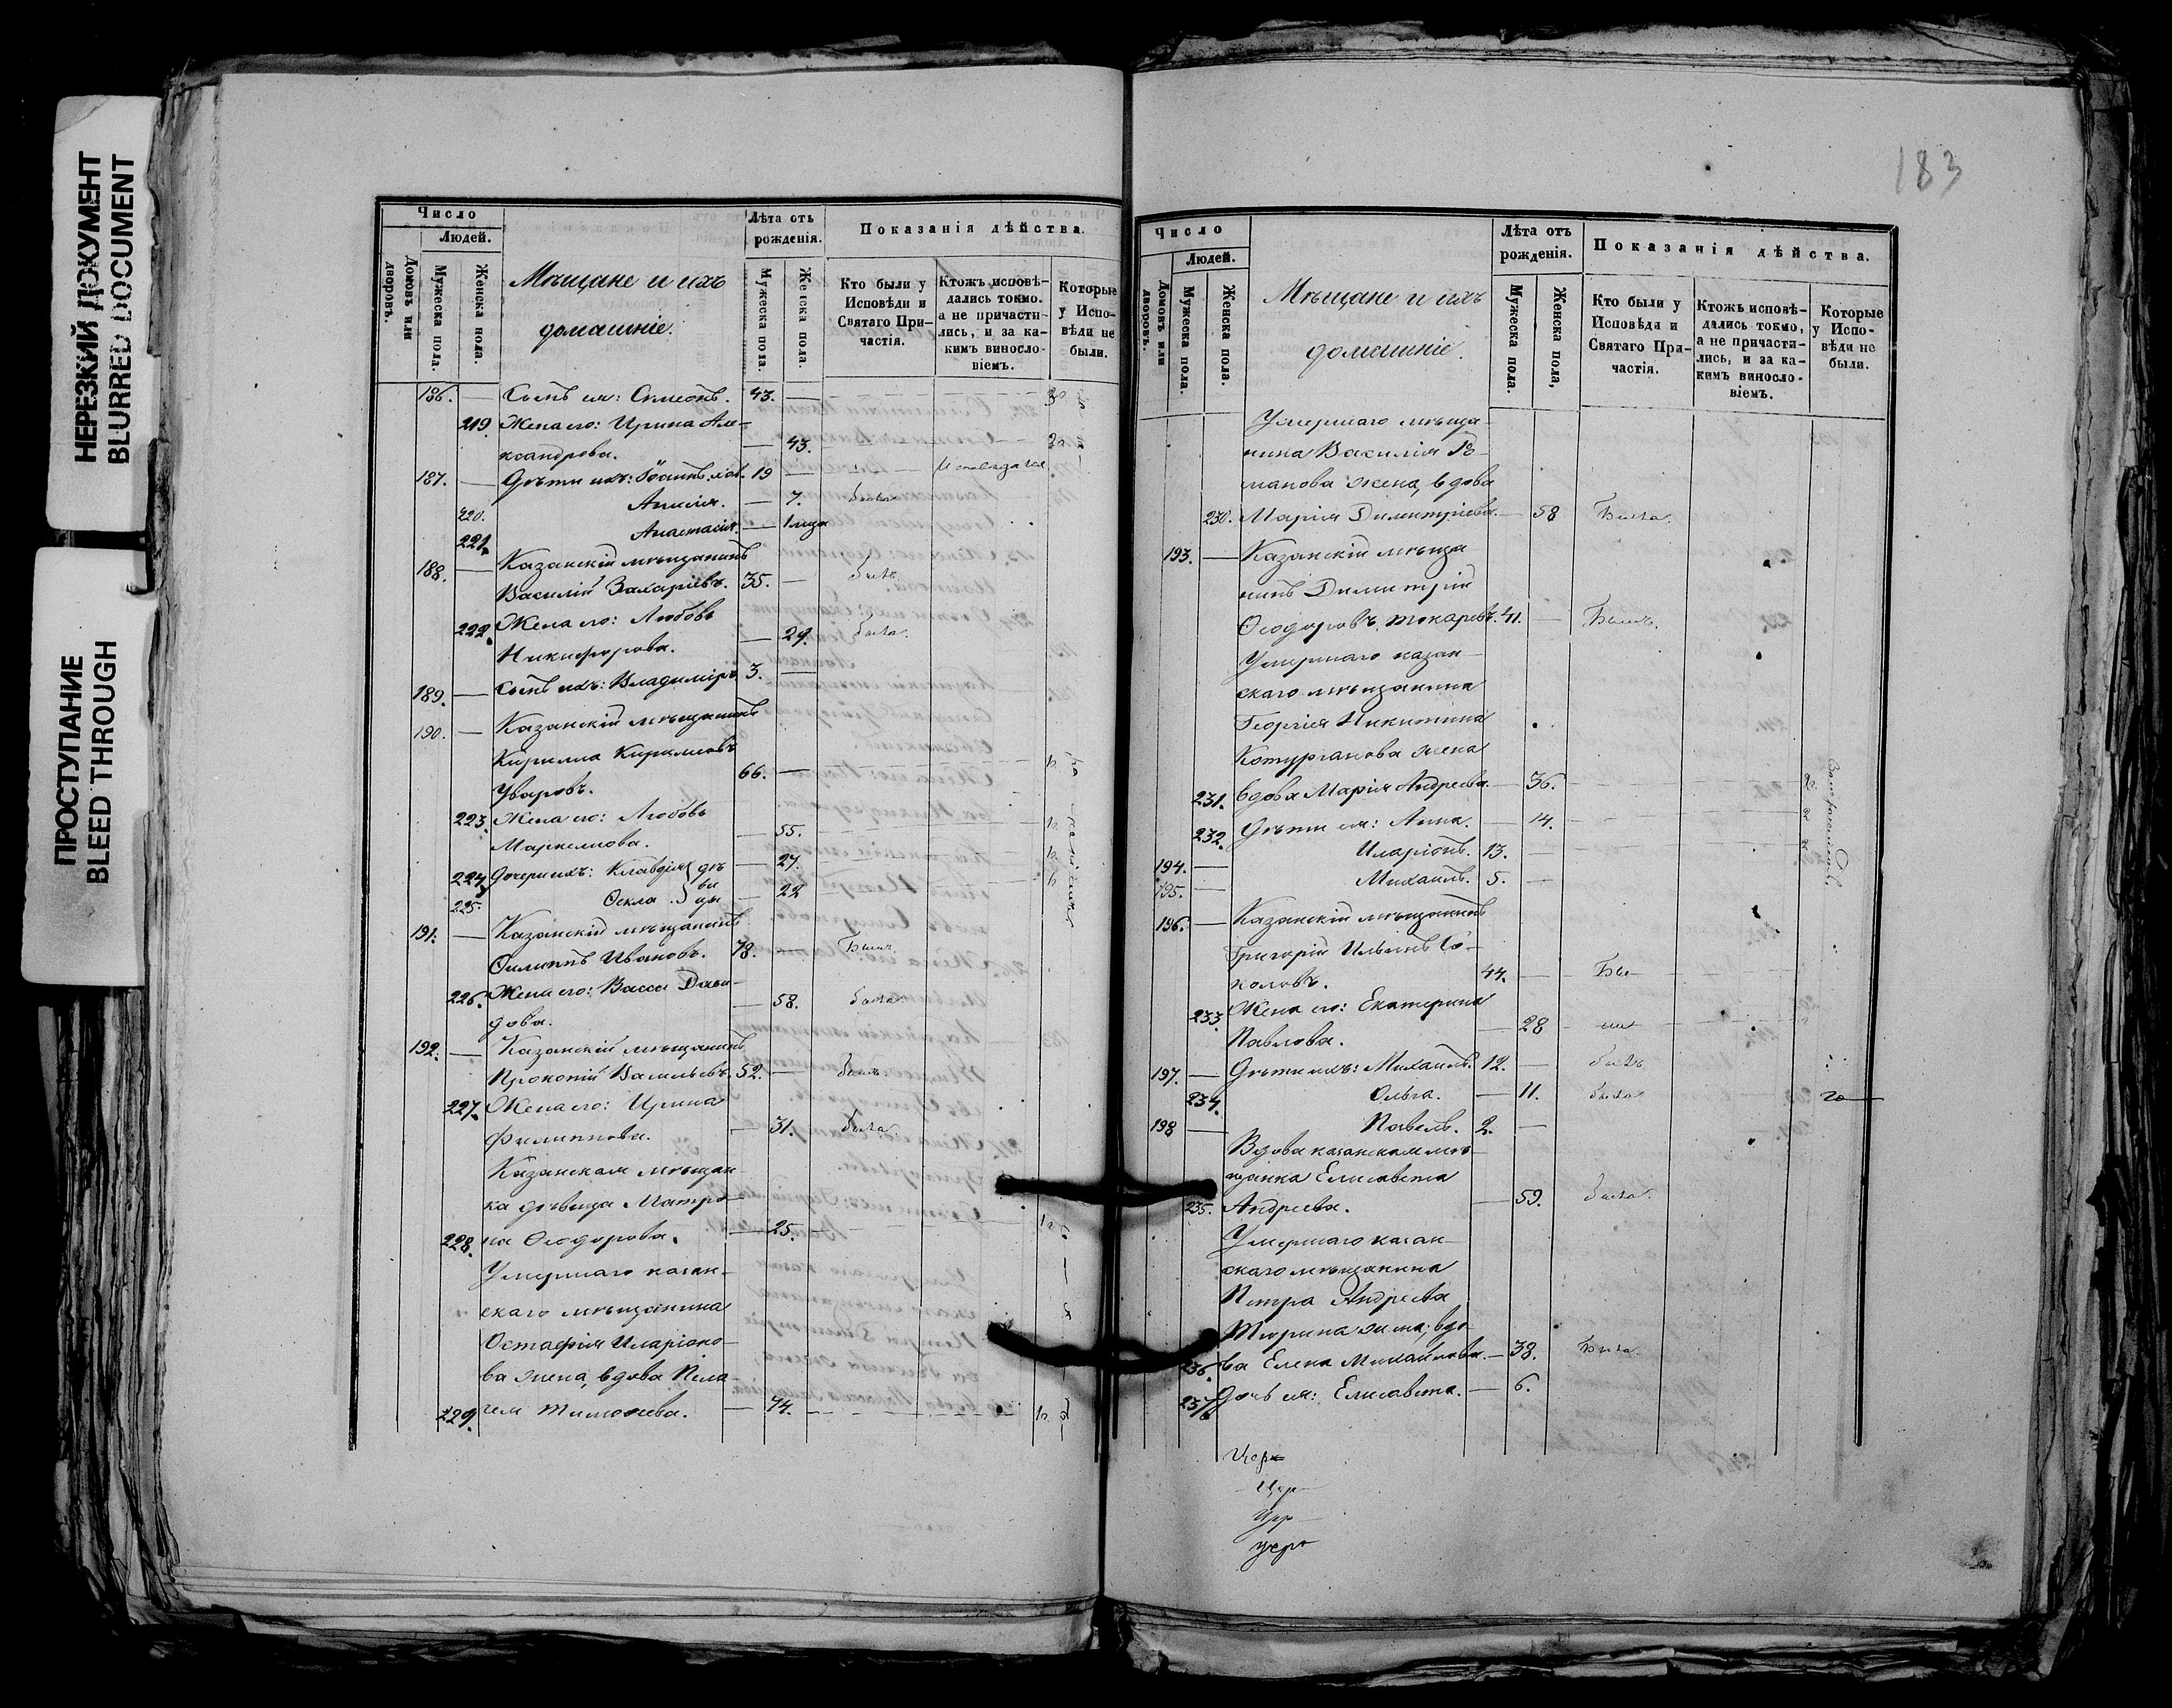 НЕРЕЗКИЙ ДОКУМЕНТ
BLURRED DOCUMENT
ПРОСТУПАНИЕ
BLEED THROUGH
Число
Людей.
Домовъ или дворовъ.
Мужеска пола.
Женска пола.
Мѣщане и ихъ
домашніе.
Лѣта отъ
рожденія.
Мужеска пола.
Женска пола.
Показанія дѣйства.
Кто были у
Исповѣди и
Святаго При-
частія.
Ктожъ исповѣ-
дались токмо.
а не причасти-
лись, и за ка-
кимъ винос­ло-
віемъ.
Которые
у Испо-
вѣди не
были.
186. — Сынъ ея: Симеонъ. 43. —
219. Жена его: Ирина Але-
ксандрова. — 43.
187. — Дѣти ихъ: 19 —
220. — 7. была
221. Анастасія. — 1 мца
188. — Казанскій мѣщанинъ
Василій Захаріевъ. 35. — былъ
222. Жена его: Любовь
Никифорова. — 29. была.
189. — Сынъ ихъ: Владиміръ 3. —
190. — Казанскій мѣщанинъ
Кириллъ Кирилловъ
Уваровъ. 66. —
223. Жена его: Любовь
Маркеллова. — 55.
224. Дочери ихъ: Клавдія дѣ — 27.
225. Ѳекла. ви цы — 22
191. — Казанскій мѣщанинъ
Филиппъ Ивановъ. 78. — Былъ
226. Жена его: Васса Дави-
дова. — 58. была
192. — Казанскій мѣщанинъ
Прокопій Васильевъ. 52. — былъ.
227. Жена его: Ирина
Филиппова. — 31. была.
Казанская мѣщан-
ка дѣвица Матро-
228. на Ѳеодорова. — 25.
Умершаго казан-
скаго мѣщанина
Остафія Иларіоно-
ва жена, вдова Пела-
229. гея Тимоѳеева. — 74.
183
Число
Людей.
Домовъ или дворовъ.
Мужеска пола.
Женска пола.
Мѣщане и ихъ
домашніе.
Лѣта отъ
рожденія.
Мужеска пола.
Женска пола,
Показанія дѣйства.
Кто были у
Исповѣди и
Святаго При-
частія.
Ктожъ исповѣ-
дались токмо,
а не причасти-
лись, и за ка-
кимъ винос­ло-
віемъ.
Которые
у Испо-
вѣди не
были.
Умершаго мѣща-
нина Василія Ро-
манова жена, вдова
230. Марія Димитріева. — 58 Была.
193. — Казанскій мѣща
нинъ Димитрій
Ѳеодоровъ Токаревъ. 41. — Былъ.
Умершаго казан-
скаго мѣщанина
Георгія Никитина
Котурганова жена
231. вдова Марія Андреева. — 36.
232. Дѣти ея: Анна. — 14.
194. — Иларіонъ. 13. —
195. — Михаилъ. 5. —
196. — Казанскій мѣщанинъ
Григорій Ильинъ Со-
коловъ. 44. — Бы-
233. Жена его: Екатерина
Павлова. — 28 ли
197. — Дѣти ихъ: Михаилъ. 12. — былъ
234. Ольга. — 11. была
198 — Павелъ. 2. —
Вдова казанская мѣ-
щанка Елисавета
235. Андреева. — 59. была.
Умершаго казан-
скаго мѣщанина
Петра Андреева
Тюрина жена, вдо-
236. ва Елена Михайлова. — 38. Была
237. Дочь ея: Елисавета. — 6.